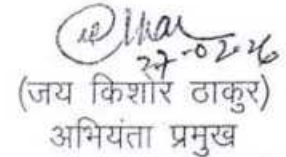 27-02-26
(जय किशोर ठाकुर)
अभियंता प्रमुख